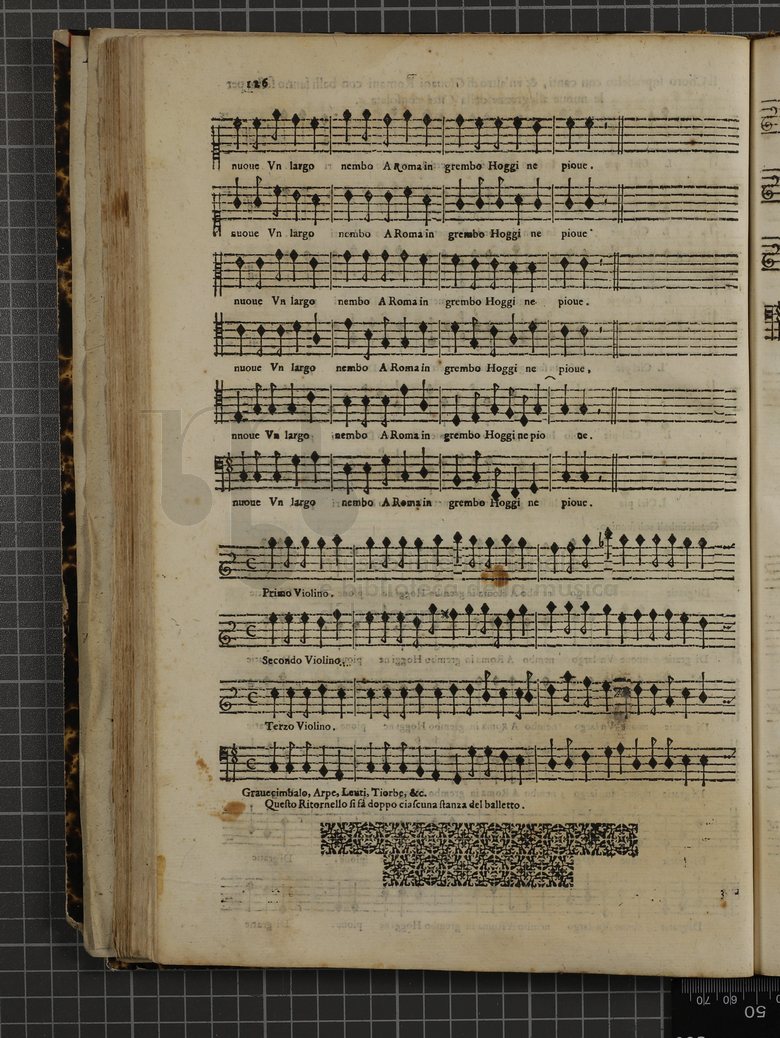 126
nuoue Vn largo nembo A Roma in grembo Hoggi ne pioue.
nuoue Vn largo nembo A Roma in grembo Hoggi ne pioue
nuoue Vn largo nembo A Roma in grembo Hoggi ne pioue.
nuoue Vn largo nembo A Roma in grembo Hoggi ne pioue,
nnoue Vn largo nembo A Roma in grembo Hoggi ne pio ue.
nuoue Vn largo nembo A Roma in grembo Hoggi ne pioue.
Primo Violino.
Secondo Violino.
Terzo Violino.
Grauecimbalo, Arpe, Leuti, Tiorbe, &c.
Queſto Ritornello ſi fà doppo ciaſcuna ſtanza del balletto.
70 60
50